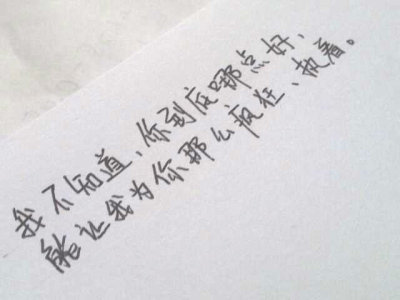 我不知道、你到底哪点好、
能让我为你那么疯狂、执着。